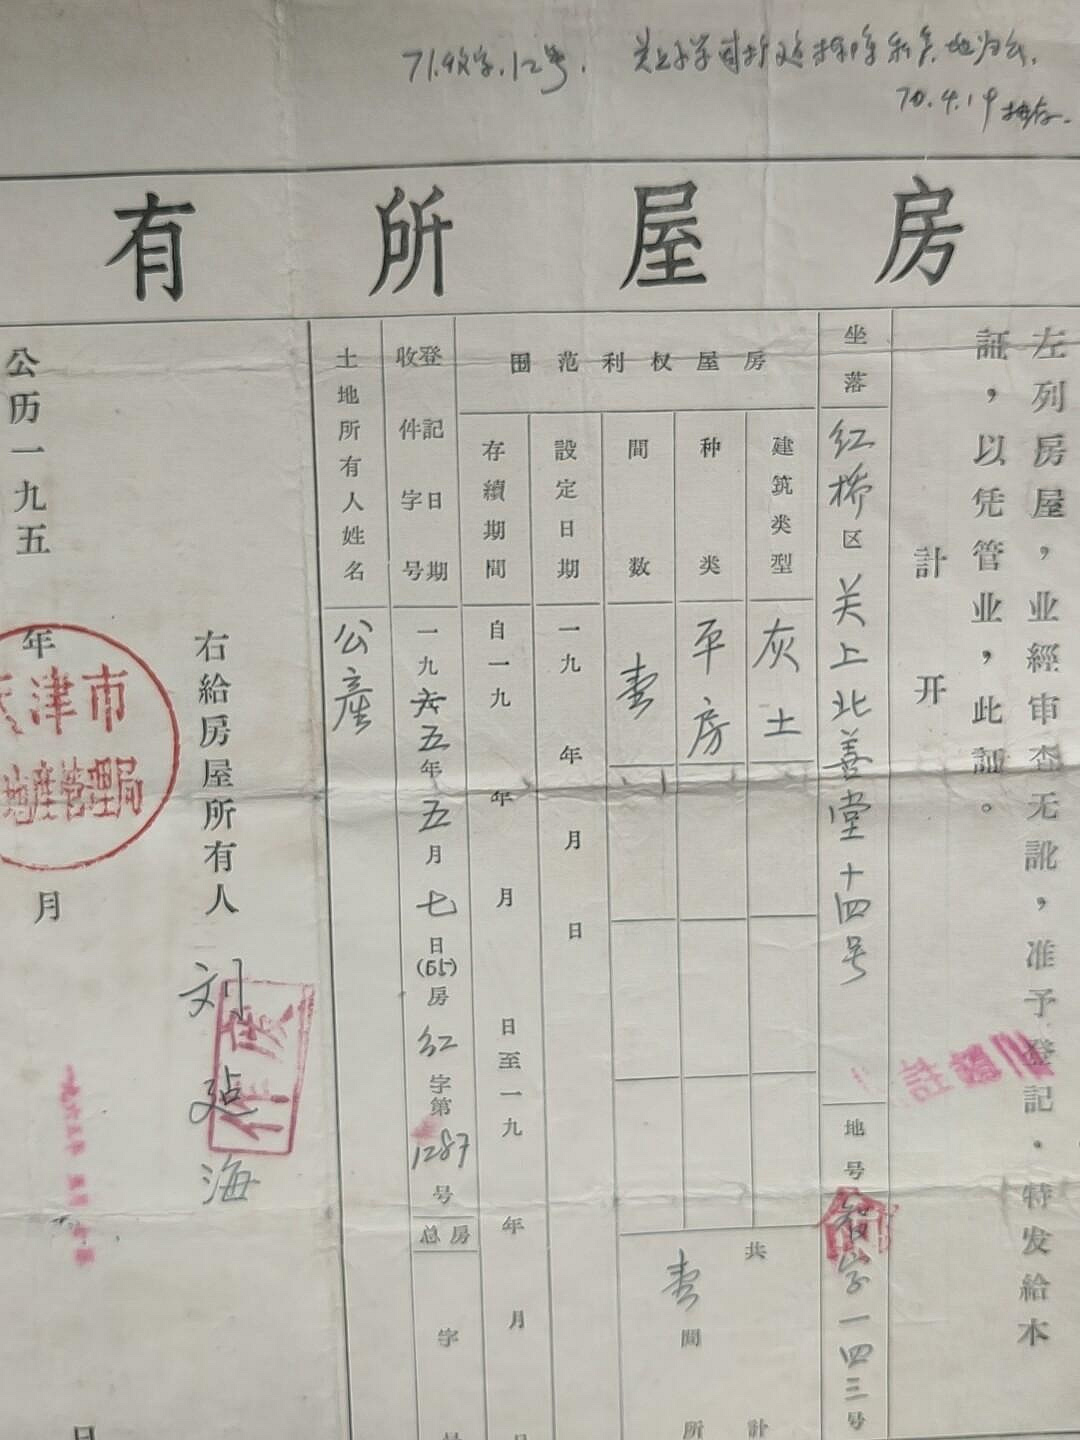 71.收字.12号.
70.4.19
房屋所有
左列房屋，业經审查无訛，准予登記．特发給本
証，以凭管业，此証。
計开
坐落 红桥区关上北善堂十四号
地号 智字一四三号
房屋权利范围
建筑类型 灰土
种类 平房
間数 壹
共壹間
計
所
設定日期 一九 年 月 日
存續期間 自一九 年 月 日至一九 年 月 日
登記日期 一九六五年五月七日
收件字号 (65)房红字第1287号
总房 字
土地所有人姓名 公產
右給房屋所有人 刘廷海
作废
公历一九五 年 月 日
津市
地產管理局
一九六五年 五月 七日
註